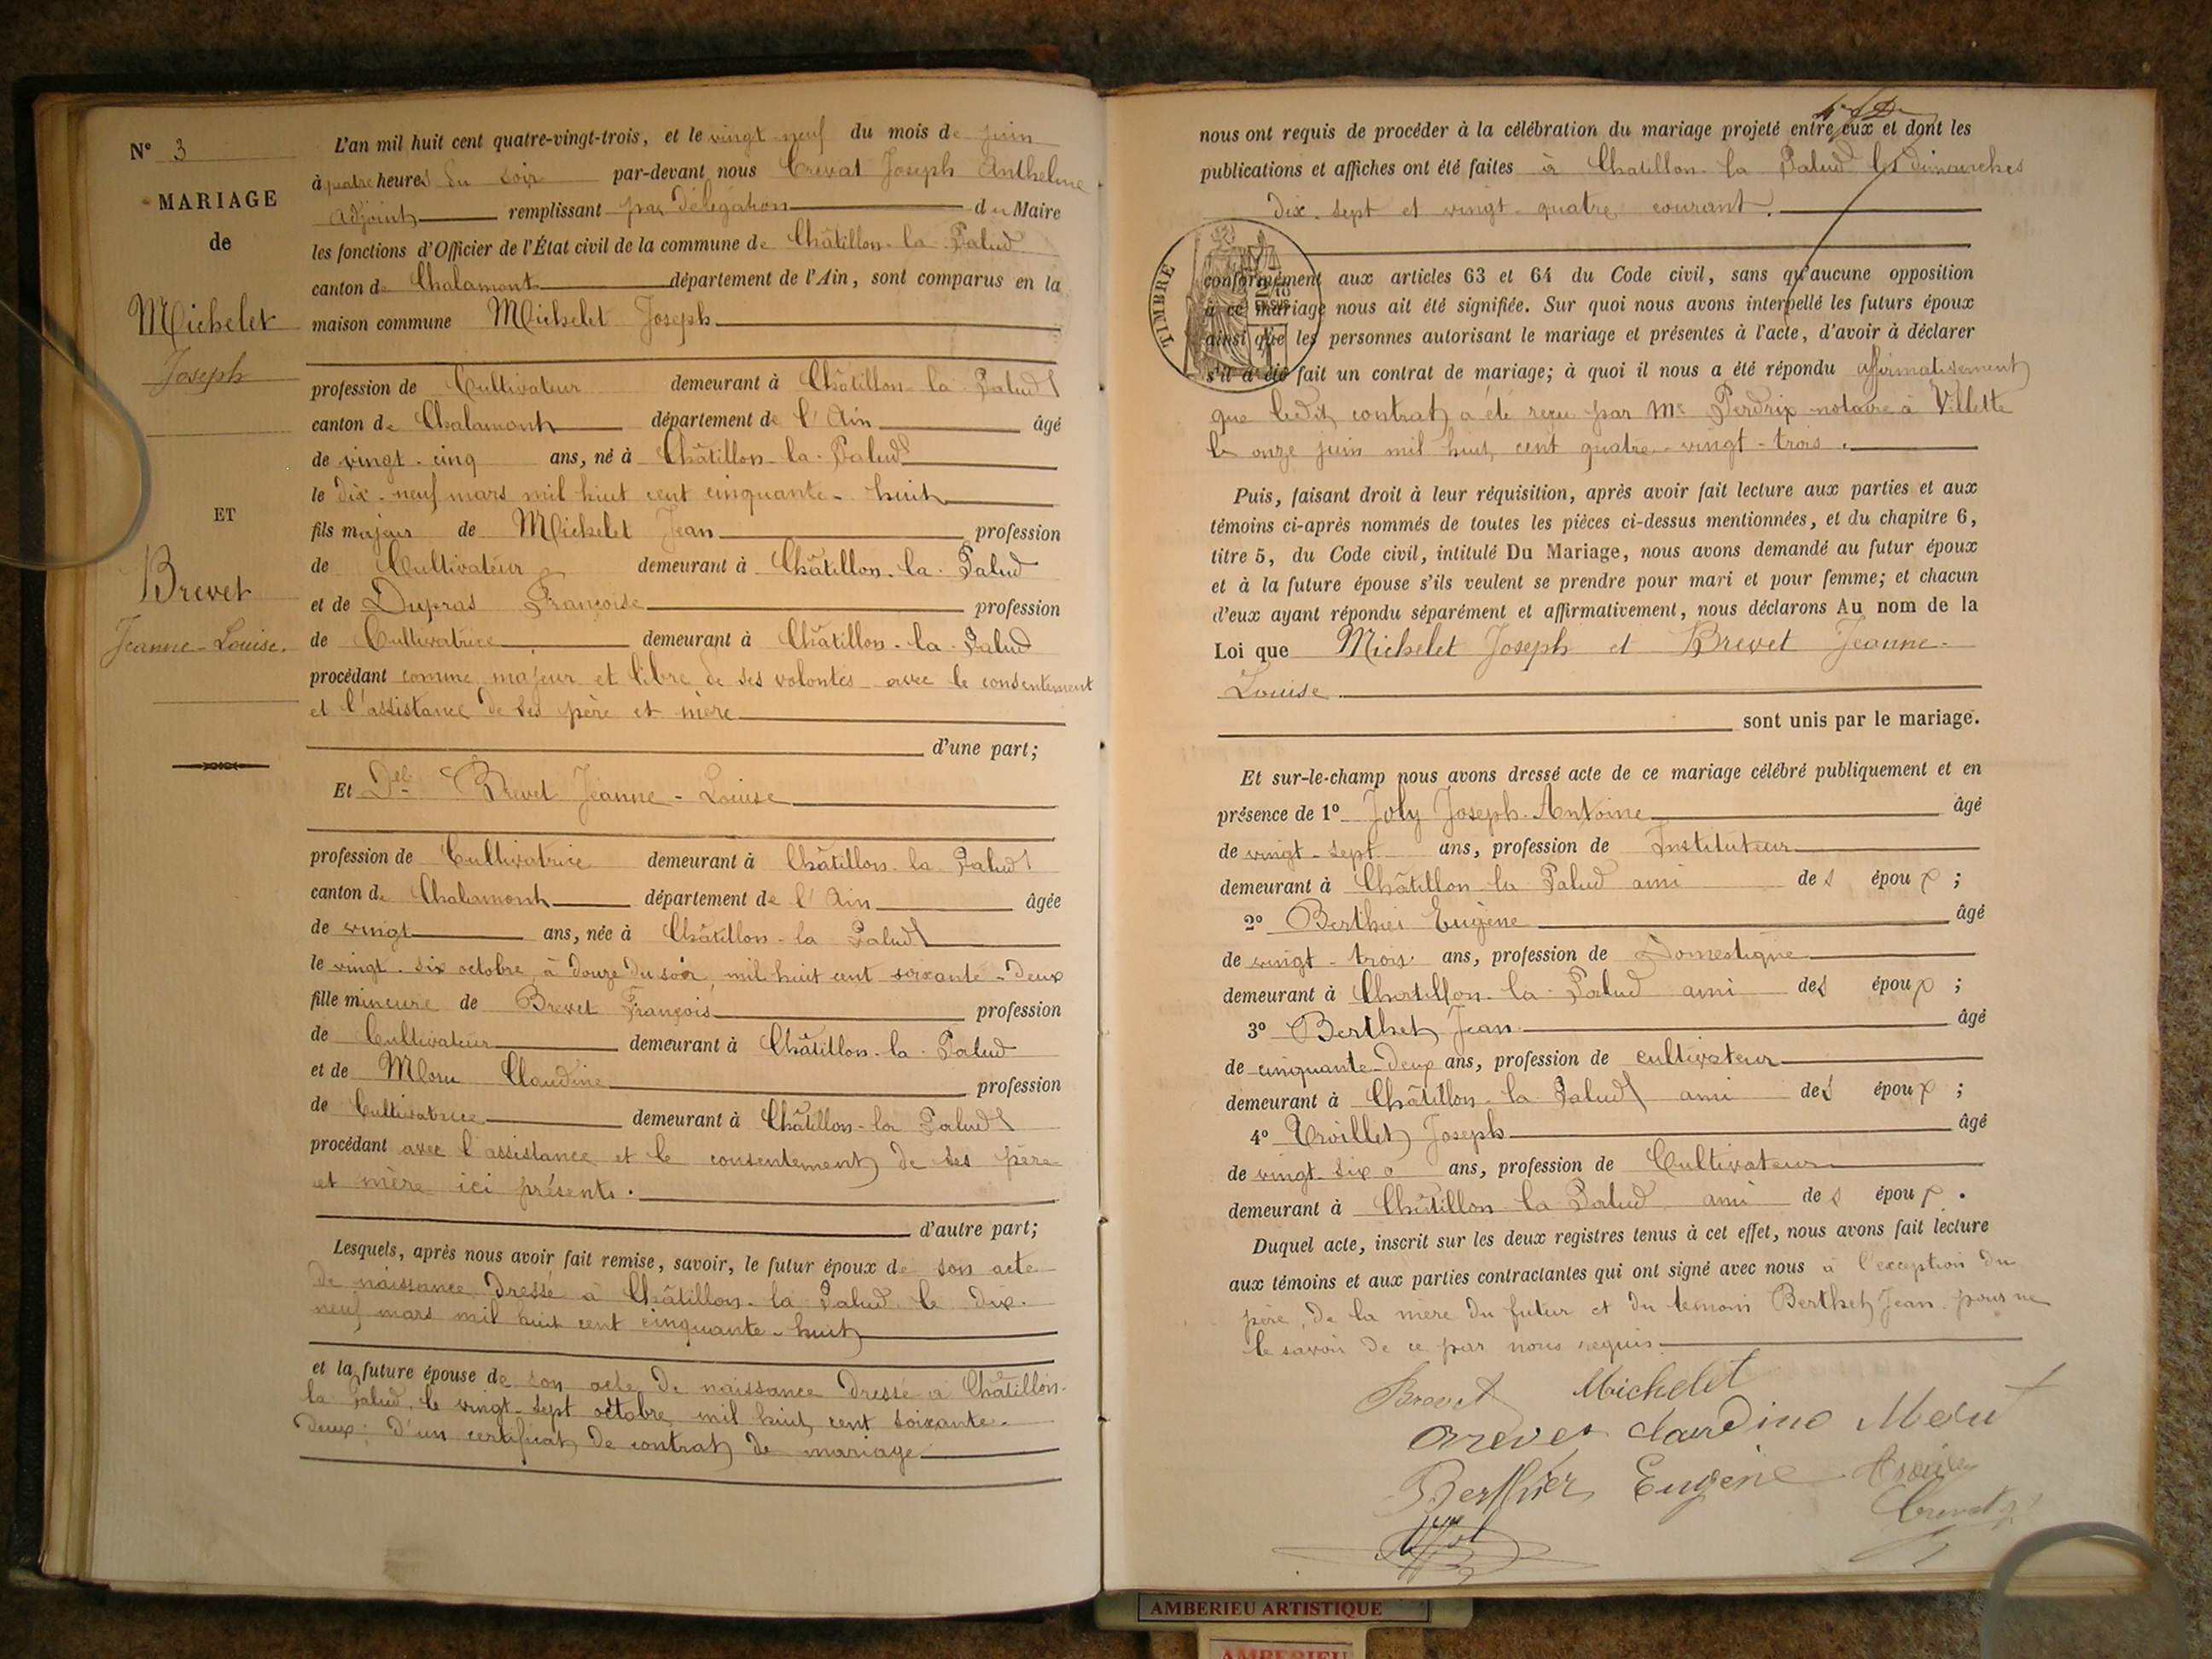 N° 3
MARIAGE
de
Michelet
Joseph
ET
Brevet
Jeanne-Louise.
L'an mil huit cent quatre-vingt-trois, et le vingt neuf du mois de juin
à quatre heures du soir par-devant nous Crevat Joseph Anthelme
adjoint remplissant par délégation du Maire
les fonctions d'Officier de l'État civil de la commune de Châtillon-la-Palud
canton de Chalamont département de l'Ain, sont comparus en la
maison commune Michelet Joseph
profession de Cultivateur demeurant à Châtillon-la-Palud
canton de Chalamont département de l'Ain âgé
de vingt-cinq ans, né à Châtillon-la-Palud
le dix-neuf mars mil huit cent cinquante-huit
fils majeur de Michelet Jean profession
de Cultivateur demeurant à Châtillon-la-Palud
et de Dupras Françoise profession
de Cultivatrice demeurant à Châtillon-la-Palud
procédant comme majeur et libre de ses volontés avec le consentement
et l'assistance de ses père et mère
d'une part;
Et Delle Brevet Jeanne-Louise
profession de Cultivatrice demeurant à Châtillon-la-Palud
canton de Chalamont département de l'Ain âgée
de vingt ans, née à Châtillon-la-Palud
le vingt-six octobre, à douze du soir, mil huit cent soixante-deux
fille mineure de Brevet François profession
de Cultivateur demeurant à Châtillon-la-Palud
et de Moru Claudine profession
de Cultivatrice demeurant à Châtillon-la-Palud
procédant avec l'assistance et le consentement de ses père
et mère ici présents.
d'autre part;
Lesquels, après nous avoir fait remise, savoir, le futur époux de son acte
de naissance dressé à Châtillon-la-Palud le dix-
neuf mars mil huit cent cinquante-huit
et la future épouse de son acte de naissance dressé à Châtillon-
la Palud, le vingt-sept octobre mil huit cent soixante-
deux; d'un certificat de contrat de mariage
nous ont requis de procéder à la célébration du mariage projeté entre eux et dont les
publications et affiches ont été faites à Chatillon-la Palud les dimanches
dix-sept et vingt-quatre courant.
TIMBRE
conformément aux articles 63 et 64 du Code civil, sans qu'aucune opposition
à ce mariage nous ait été signifiée. Sur quoi nous avons interpellé les futurs époux
ainsi que les personnes autorisant le mariage et présentes à l'acte, d'avoir à déclarer
s'il a été fait un contrat de mariage; à quoi il nous a été répondu affirmativement
que ledit contrat a été reçu par Me Perdrix notaire à Villette
le onze juin mil huit cent quatre-vingt-trois.
Puis, faisant droit à leur réquisition, après avoir fait lecture aux parties et aux
témoins ci-après nommés de toutes les pièces ci-dessus mentionnées, et du chapitre 6,
titre 5, du Code civil, intitulé Du Mariage, nous avons demandé au futur époux
et à la future épouse s'ils veulent se prendre pour mari et pour femme; et chacun
d'eux ayant répondu séparément et affirmativement, nous déclarons Au nom de la
Loi que Michelet Joseph et Brevet Jeanne-
Louise
sont unis par le mariage.
Et sur-le-champ nous avons dressé acte de ce mariage célébré publiquement et en
présence de 1° Joly Joseph-Antoine âgé
de vingt-sept ans, profession de Instituteur
demeurant à Châtillon-la Palud ami des époux;
2° Berthier Eugène âgé
de vingt-trois ans, profession de Domestique
demeurant à Chatillon-la-Palud ami des époux;
3° Berthet Jean âgé
de cinquante-deux ans, profession de cultivateur
demeurant à Châtillon-la Palud ami des époux;
4° Joseph âgé
de vingt-six ans, profession de Cultivateur
demeurant à Châtillon la Palud ami des époux.
Duquel acte, inscrit sur les deux registres tenus à cet effet, nous avons fait lecture
aux témoins et aux parties contractantes qui ont signé avec nous à l'exception du
père, de la mère du futur et du témoin Berthet Jean pour ne
le savoir de ce par nous requis
Brevet Michelet
Brevet claudine Moru
Berthier Eugène
Crevat
AMBERIEU ARTISTIQUE
AMBERIEU